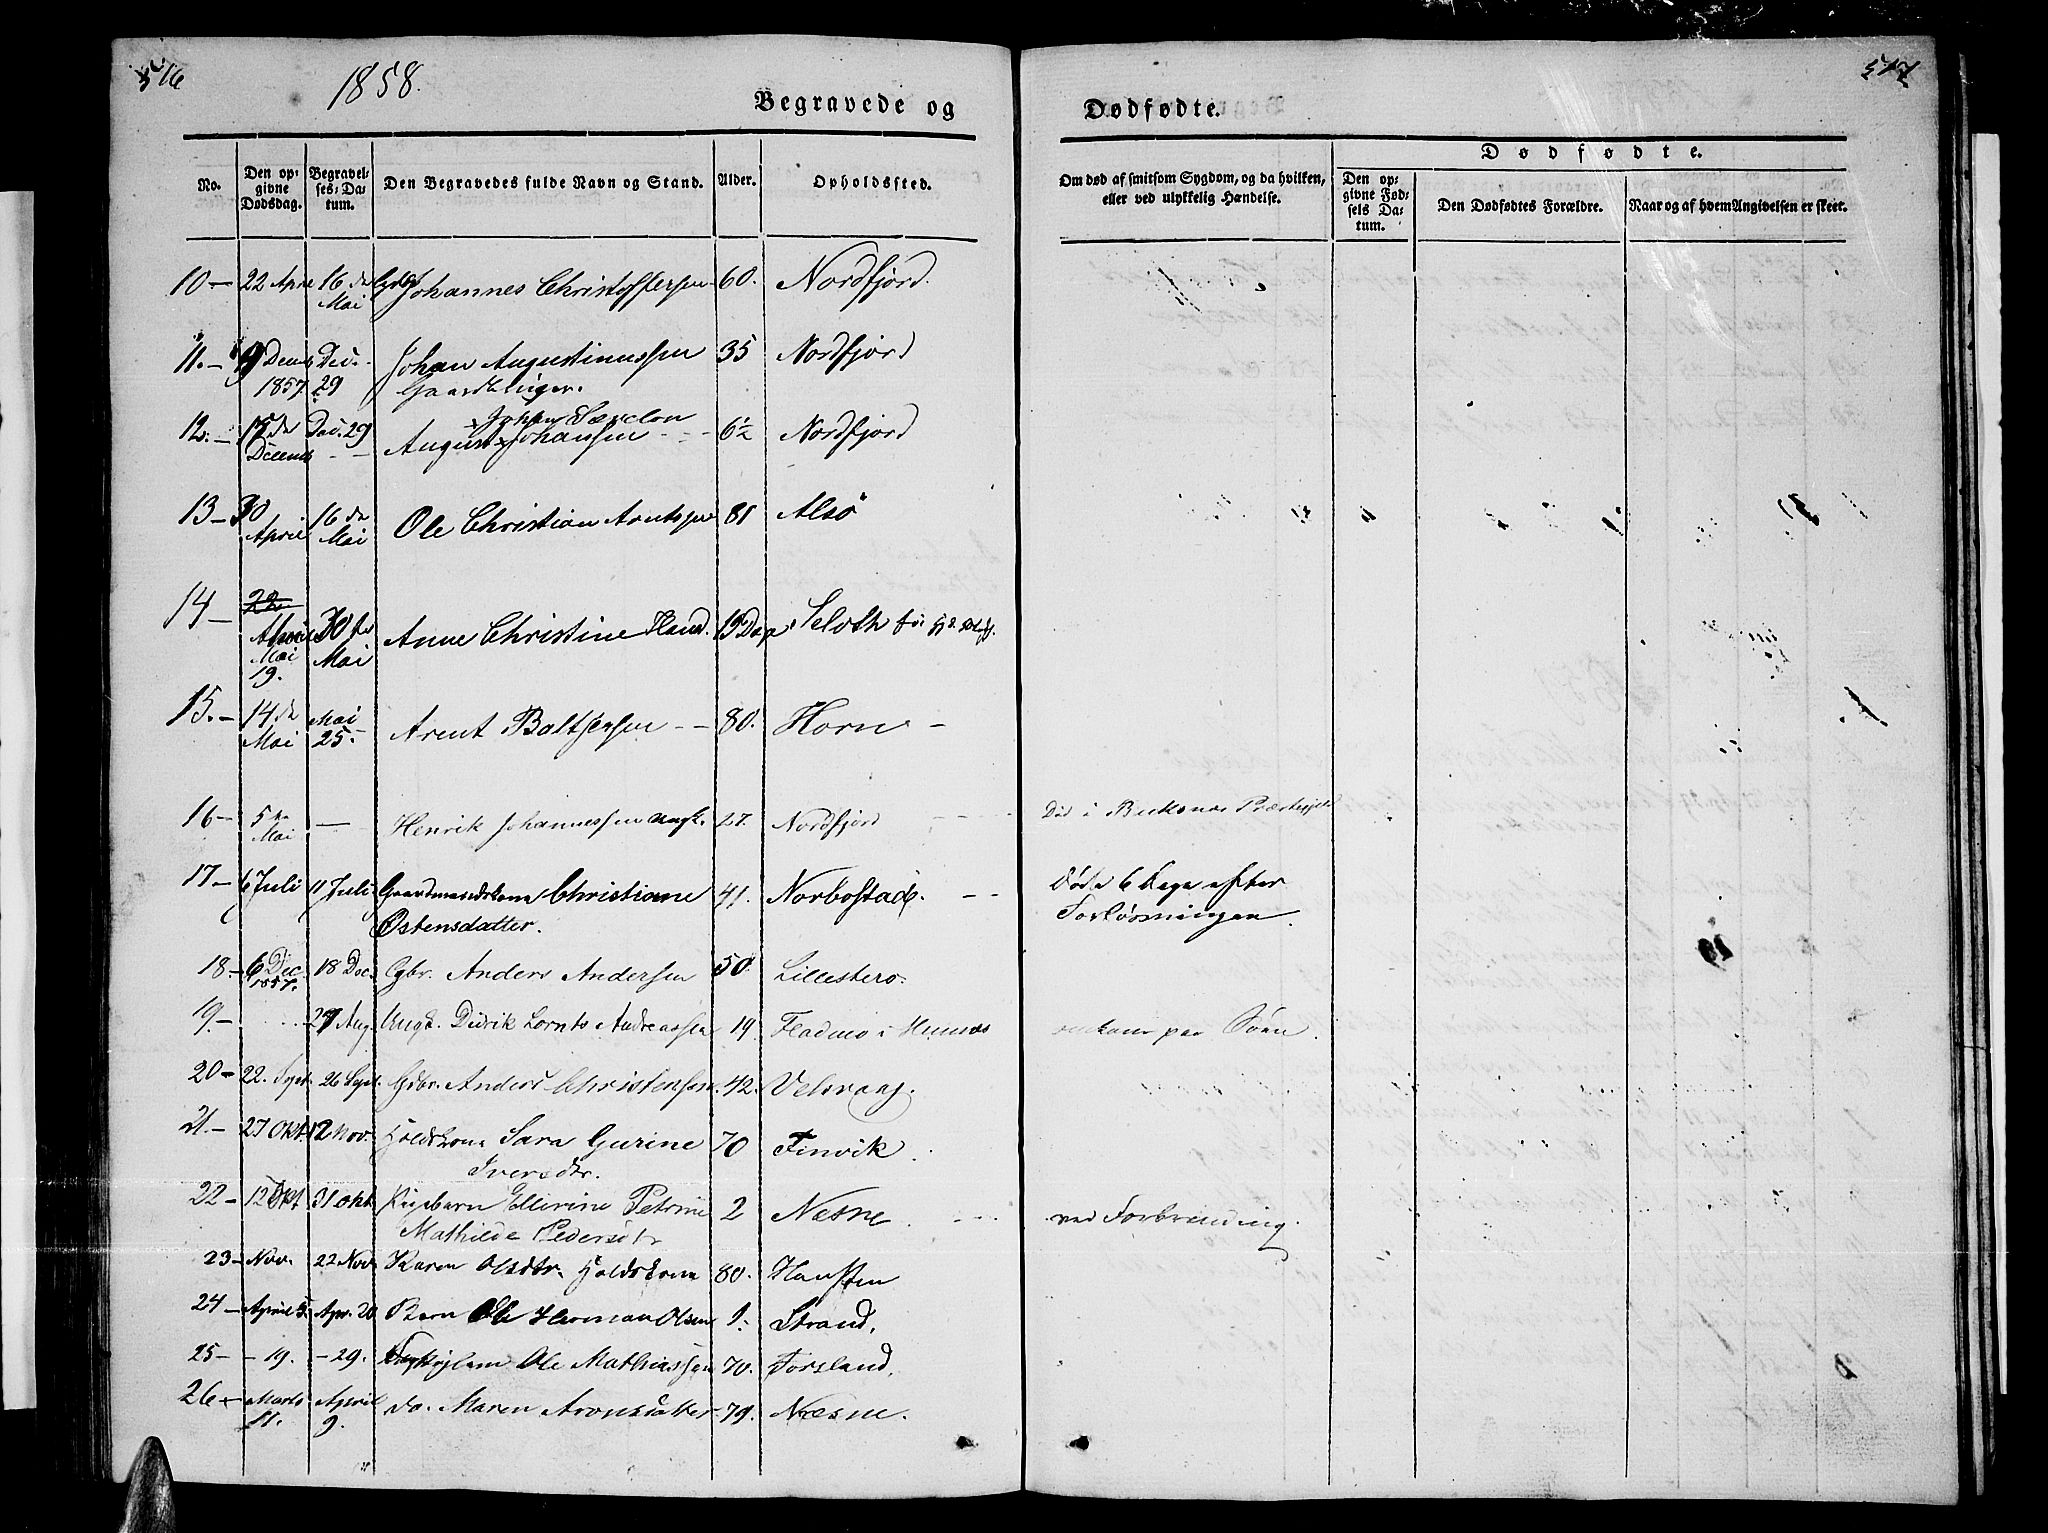 516
1858.
Begravede og
Dødfødte.
517
No.
Den op-
givne
Dødsdag.
Begravel-
ses-Da-
tum.
Den Begravedes fulde Navn og Stand.
Alder.
Opholdssted.
Om død af smitsom Sygdom, og da hvilken,
eller ved ulykkelig Hændelse.
Dødfødte.
Den op-
givne Fød-
sels Da-
tum.
Den Dødfødtes Forældre.
Naar og af hvem Angivelsen er skeet.
10 - 22 April 16 de Mai Gdbr Johannes Christoffersen 60. Nordfjord.
11. - 9 Decemb 1857 Dec. 29 Johan Augustinussen 35 Nordfjord
12. - 17 de Decemb Dec. 29 August Johansen 6½ Nordfjord
13 - 30 April 16 de Mai Ole Christian Arntsen 81 Alsø
14 - 22 April Mai 19. 30 te Mai Anne Christine 13 Dage Selvth
15. - 14 de Mai Mai 25. Arent Baltsersen - - 80. Horn -
16 - 5 te Mai — Henrik Johannessen ungk. 27. Nordfjord Død i Præstegjeld
17 - 6 Juli 11 Juli Gaardmandskone Christiane 41. Norbostad. Døde 6 Dage efter
Østensdatter. Forløsningen.
18. - 6 Dec. 1857. 18 Dec. Gbr. Anders Andersen 50. Lillestero.
19 - 29 Aug. Ungk. Didrik Lornts Andreassen 19. i omkom paa Søen.
20 - 22. Sept. 26 Sept. Gdbr. Anders Christensen. 42. Velsvaag.
21. - 27 Okt. 12 Nov. Holdskone Sara Gurine 70 Finvik.
Iversdtr.
22 - 12 Okt 31 Okt. Pigebarn Ellerine Petrine 2 Nesne ved Forbrænding.
Mathilde Pedersdtr
23 - Nov. 22 Nov. Karen Olsdtr. Holdskone 80. Haugsten
24 - April 5. Apr. 20 Barn Ole Herman Olsen 1. Strand.
25 - - 19. - 29. Ole Mathiassen 70. Forsland.
26 - Marts 11. April 9. do. Maren Aronsdatter. 79. Næsne.